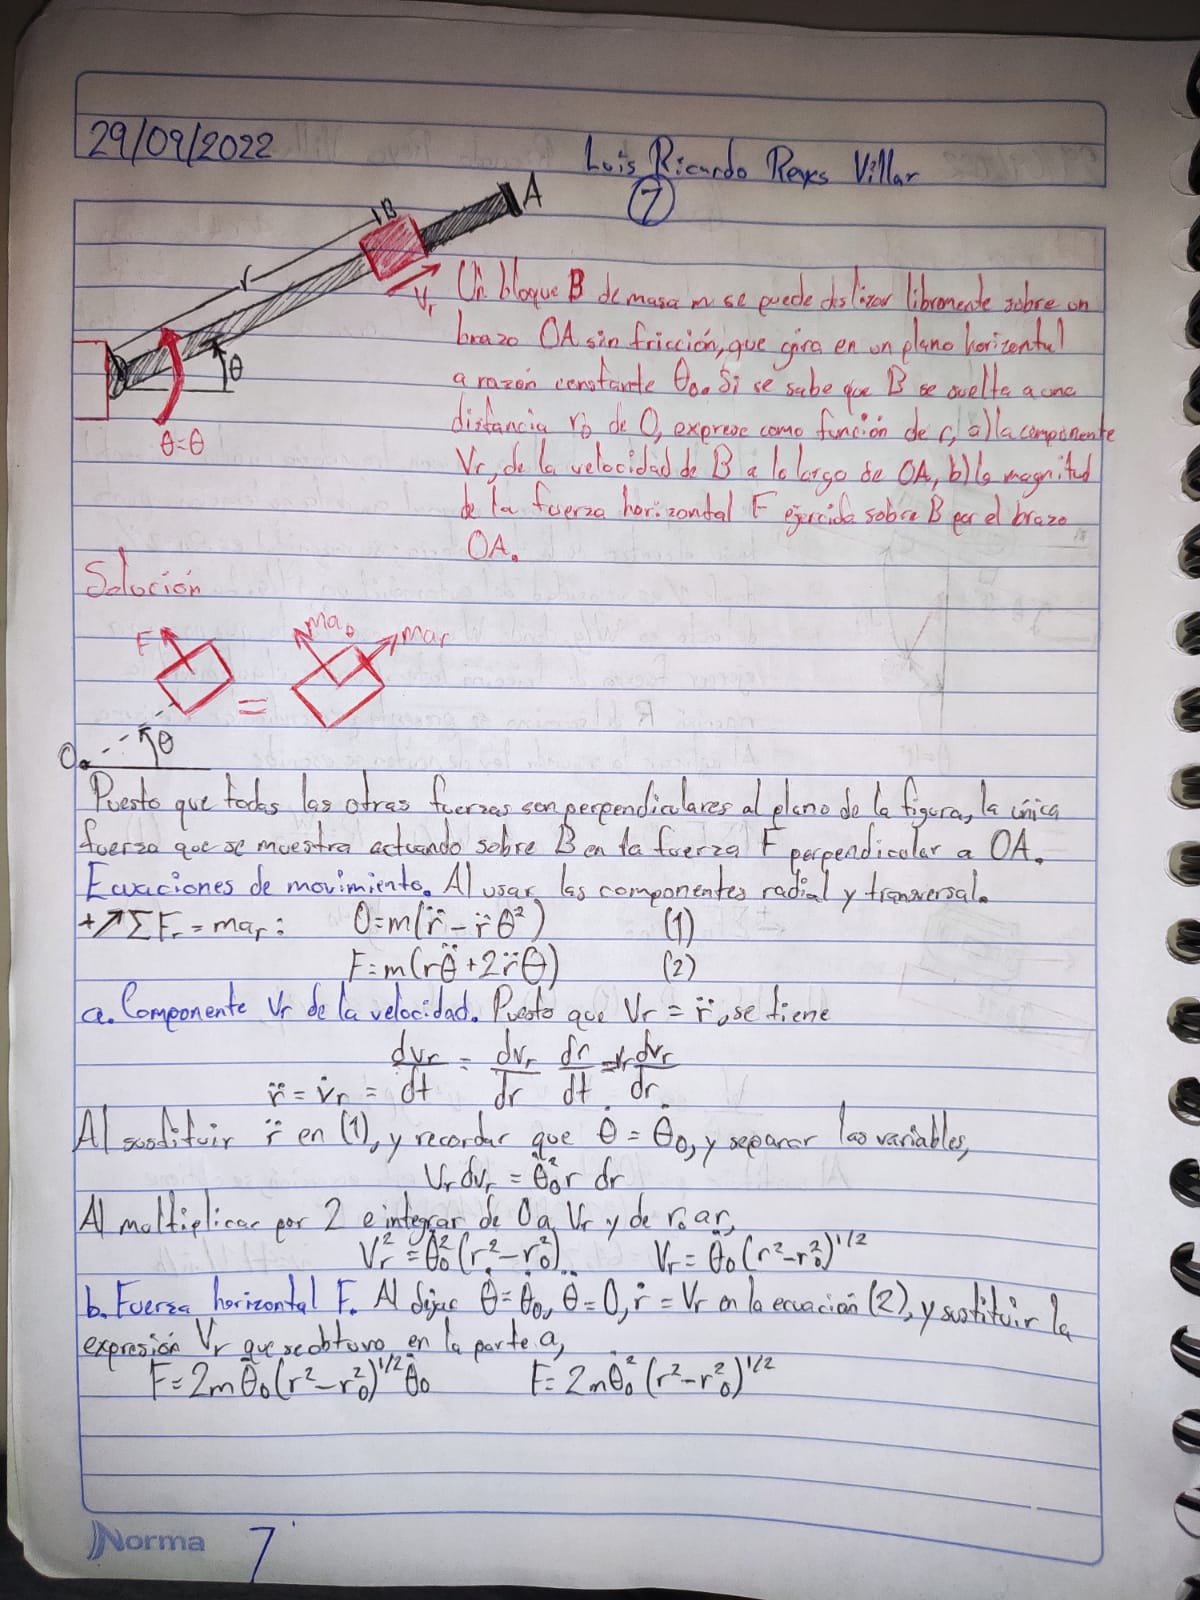 29/09/2022
Luis Ricardo Reyes Villar
7
A
B
r
Vr
θ
θ̇=θ
Un bloque B de masa m se puede deslizar libremente sobre un
brazo OA sin fricción, que gira en un plano horizontal
a razón constante θ̇₀. Si se sabe que B se suelta a una
distancia r₀ de O, exprese como función de r, a) la componente
Vr, de la velocidad de B a lo largo de OA, b) la magnitud
de la fuerza horizontal F ejercida sobre B por el brazo
OA.
Solución
F
maθ
mar
=
θ
O
Puesto que todas las otras fuerzas son perpendiculares al plano de la figura, la única
fuerza que se muestra actuando sobre B en la fuerza F perpendicular a OA.
Ecuaciones de movimiento. Al usar las componentes radial y transversal.
+↗ΣFr = mar: 0=m(r̈ - r̈θ²) (1)
F=m(rθ̈+2r̈θ) (2)
a. Componente Vr de la velocidad. Puesto que Vr = r̈, se tiene
r̈ = v̇r = dvr/dt = dvr/dr dr/dt = Vr dvr/dr
Al sustituir r̈ en (1), y recordar que θ̇ = θ̇₀, y separar las variables,
Vr dvr = θ̇₀² r dr
Al multiplicar por 2 e integrar de 0 a Vr y de r₀ a r,
Vr² = θ̇₀²(r²-r₀²) Vr = θ̇₀(r²-r₀²)^1/2
b. Fuerza horizontal F. Al dejar θ̇=θ̇₀, θ̈=0, ṙ=Vr en la ecuación (2), y sustituir la
expresión Vr que se obtuvo en la parte a,
F=2mθ̇₀(r²-r₀²)^1/2 θ̇₀ F=2mθ̇₀²(r²-r₀²)^1/2
Norma 7